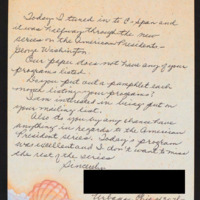 Today I tuned in to C-Span and
it was halfway through the new
series on the American Presidents -
George Washington.
Our paper does not have any of your
programs listed.
Do you put out a pamphlet each
month listing your programs?
I am interested in being put on
your mailing list.
Also do you by any chance have
anything in regards to the American
President series. Today's program
was excellent and I don't want to miss
the rest of the series
Sincerely